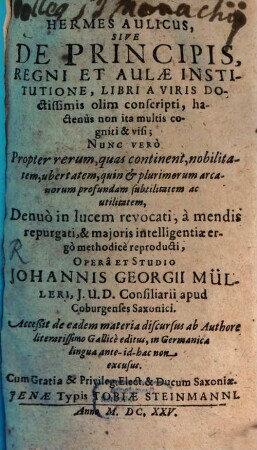 HERMES AULICUS,
SIVE
DE PRINCIPIS,
REGNI ET AULÆ INSTI-
TUTIONE, LIBRI A VIRIS DO-
ctissimis olim conscripti, ha-
ctenùs non ita multis co-
gniti & visi;
NUNC VERÒ
Propter rerum, quas continent, nobilita-
tem, ubertatem, quin & plurimorum arca-
norum profundam subtilitatem ac
utilitatem,
Denuò in lucem revocati, à mendis
repurgati, & majoris intelligentiæ er-
gò methodicè reproducti,
Operâ et Studio
JOHANNIS GEORGII MÜL-
LERI, J. U. D. Consiliarii apud
Coburgenses Saxonici.
Accessit de eadem materia discursus ab Authore
literatissimo Gallicè editus, in Germanica
lingua ante-id-hac non
excusus.
Cum Gratia & Privileg. Elect. & Ducum Saxoniæ.
JENÆ Typis TOBIÆ STEINMANNI.
Anno M. DC. XXV.